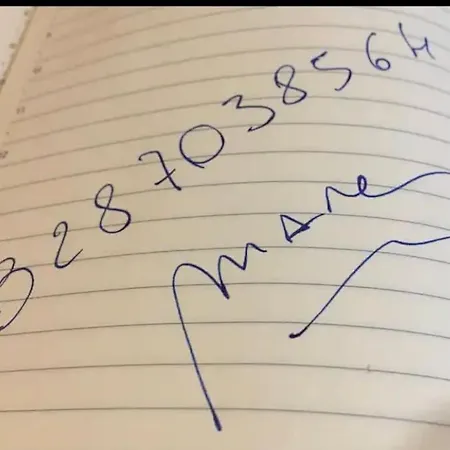 3287038564
mAre